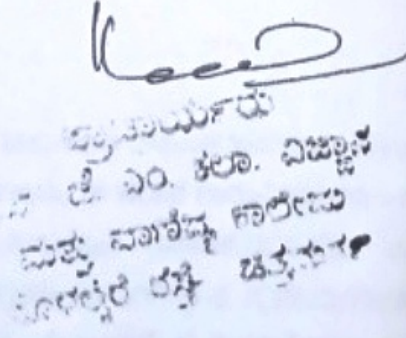 ಪ್ರಾಚಾರ್ಯರು
ಶ್ರೀ ಎಂ. ಕಲಾ. ವಿಜ್ಞಾನ
ಮತ್ತು ವಾಣಿಜ್ಯ ಕಾಲೇಜು
ರಸ್ತೆ ಚಿತ್ರದುರ್ಗ